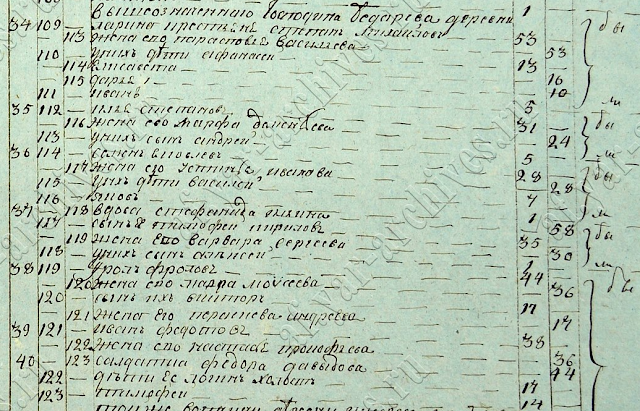 вышеозначеннаго господина Бедарева деревни
34 109 — марина крестьяне степан михайлов — 1
113 жена его парасковья васильева — 53
110 — у них дети афанасеи — 53
114 елисавета — 13
115 дарья — 16
111 — иван — 10
35 112 — илья степанов — 5
116 жена его марфа дементьева — 31
113 — у них сын андреи — 24
36 114 — семен яковлев — 5
117 жена его устинья ивлиева — 28
115 — у них дети василеи — 28
116 — яков — 7
37 — 118 вдова степанида — 1
117 — сын ея тимофеи кирилов — 58
119 жена его варвара сергеева — 35
118 — у них сын алексеи — 30
38 119 — фрол фролов — 1
120 жена его марфа моисеева — 44
120 — сын их виктор — 36
121 жена его андреева — 17
39 121 — иван федотов — 17
122 жена его настасья прокофьева — 38
40 — 123 солдатка федора давыдова — 36
122 — дети ее логин холост — 44
123 — тимофеи — 17
14
бы
ли
бы
ли
бы
ли
бы
ли
бы